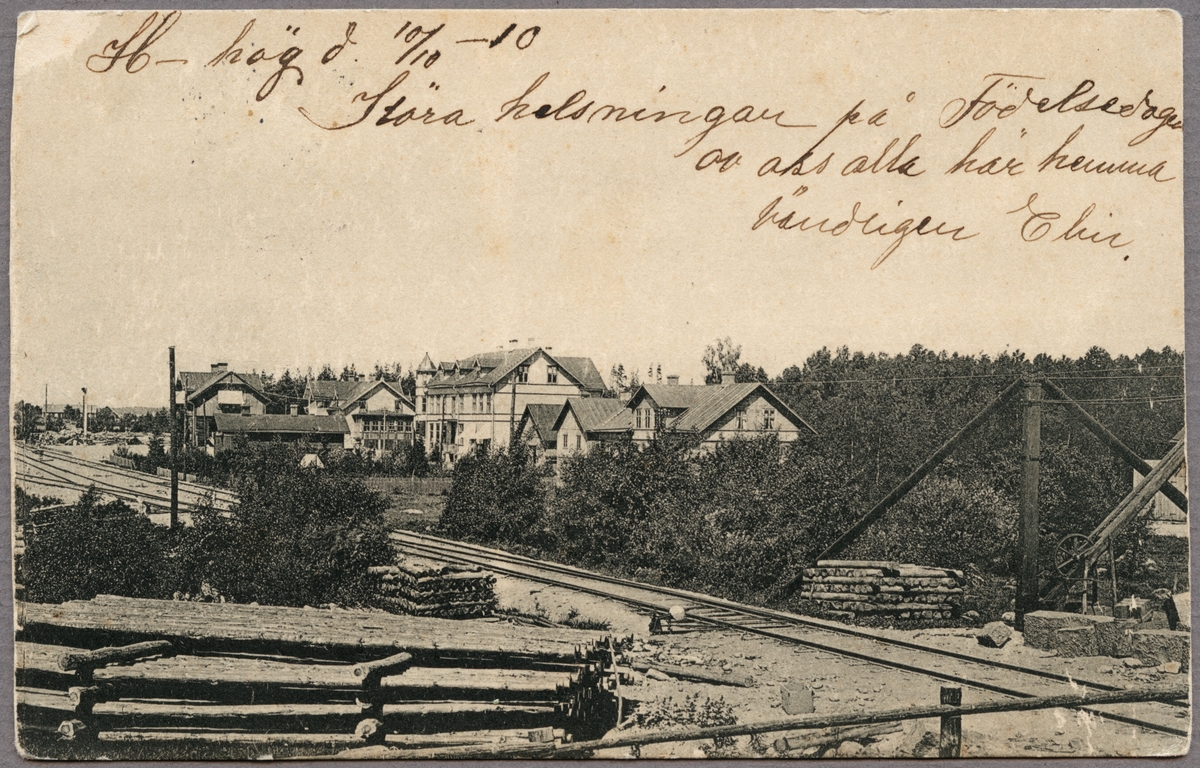 H— hög d. 10/10 —10
Störa helsningar på Födelsedagen
av oss alla här hemma
Vändligen Elin.